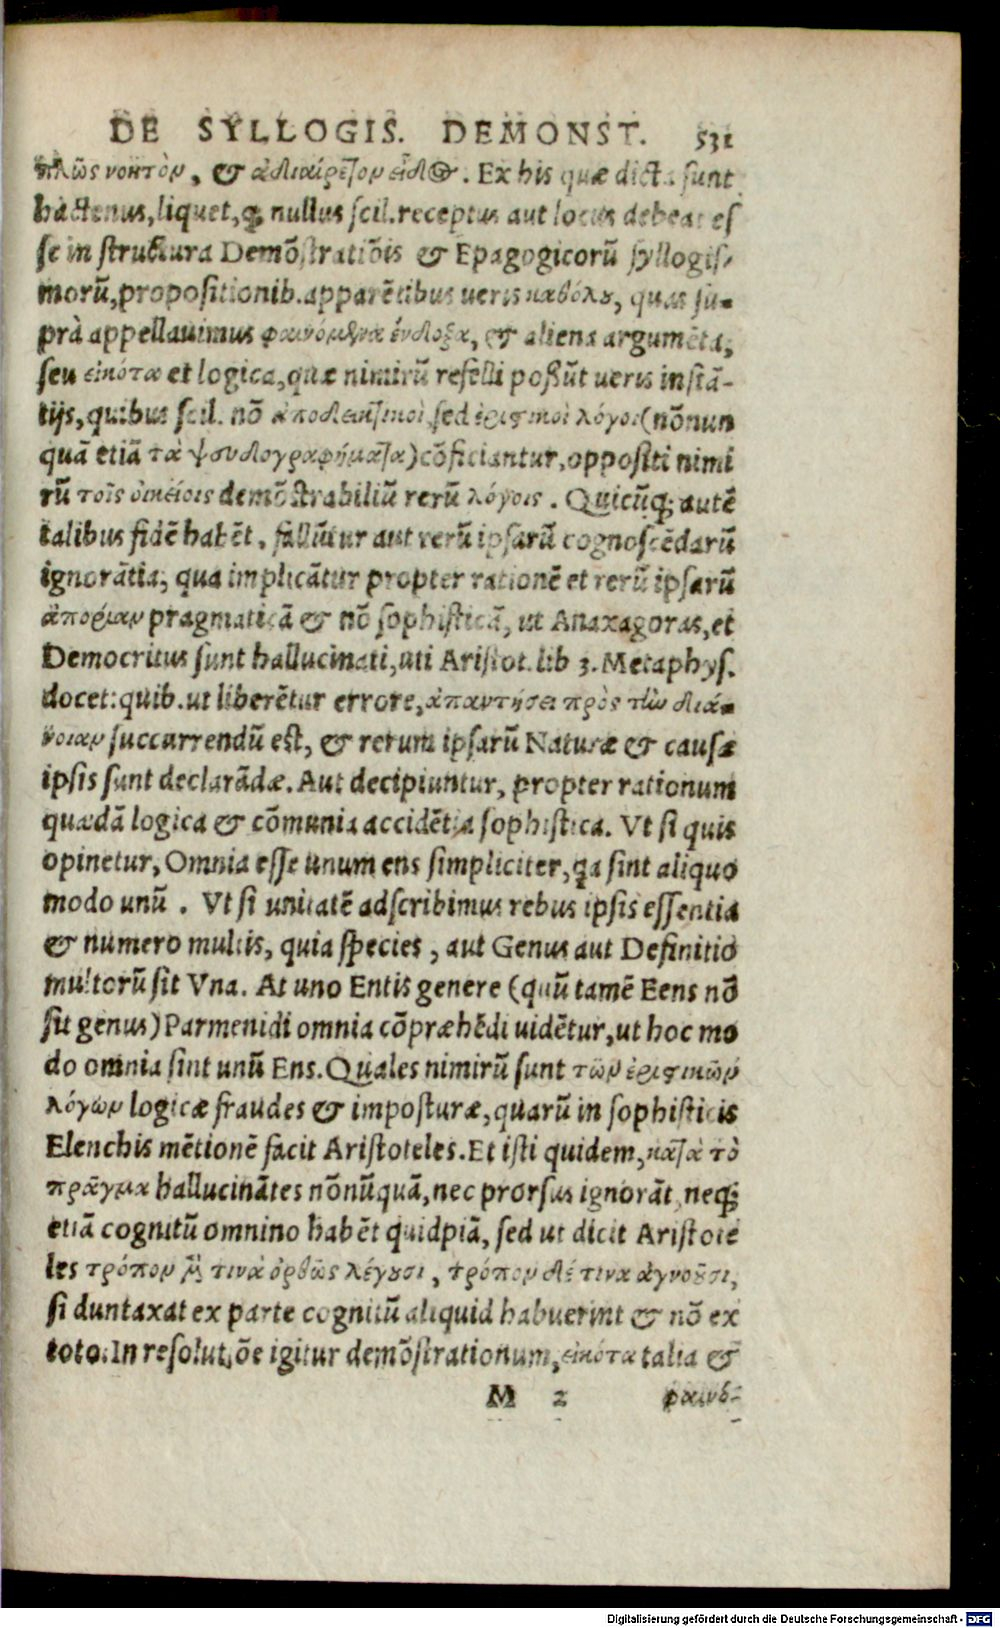 DE SYLLOGIS. DEMONST. 531
πλῶς νοητὸν, & ἀδιαίρετον εἶδος. Ex his quæ dicta sunt
hactenus, liquet, ꝙ nullus scil. receptus aut locus debeat es
se in structura Demōstratiōis & Epagogicorū syllogis-
morū, propositionib. apparētibus ueris καθόλου, quas su-
prà appellauimus φαινόμενα ἔνδοξα, & aliena argumēta,
seu εἰκότα et logica, quæ nimirū refelli possūt ueris instā-
tijs, quibus scil. nō ἀποδεικτικοὶ, sed ἐριστικοὶ λόγοι (nōnun
quā etiā τὰ ψευδογραφήματα) cōficiantur, oppositi nimi
rū τοῖς οἰκείοις demōstrabiliū rerū λόγοις. Quicūq; autē
talibus fidē habēt, fallūtur aut rerū ipsarū cognoscēdarū
ignorātia, qua implicātur propter rationē et rerū ipsarū
ἀπορίαν pragmaticā & nō sophisticā, ut Anaxagoras, et
Democritus sunt hallucinati, uti Aristot. lib 3. Metaphys.
docet: quib. ut liberētur errore, ἀπαντήσει πρὸς τὴν διά-
νοιαν succurrendū est, & rerum ipsarū Naturæ & causæ
ipsis sunt declarādæ. Aut decipiuntur, propter rationum
quædā logica & cōmunia accidētia sophistica. Vt si quis
opinetur, Omnia esse unum ens simpliciter, ꝗa sint aliquo
modo unū. Vt si unitatē adscribimus rebus ipsis essentia
& numero multis, quia species, aut Genus aut Definitio
multorū sit Vna. At uno Entis genere (quū tamē Eens nō
sit genus) Parmenidi omnia cōpræhēdi uidētur, ut hoc mo
do omnia sint unū Ens. Quales nimirū sunt τῶν ἐριστικῶν
λόγων logicæ fraudes & imposturæ, quarū in sophisticis
Elenchis mētionē facit Aristoteles. Et isti quidem, κατὰ τὸ
πρᾶγμα hallucinātes nōnūquā, nec prorsus ignorāt, neq;
etiā cognitū omnino habēt quidpiā, sed ut dicit Aristote
les τρόπον μέν τινα ὀρθῶς λέγουσι, τρόπον δέ τινα ἀγνοοῦσι,
si duntaxat ex parte cognitū aliquid habuerint & nō ex
toto. In resolutiōe igitur demōstrationum, εἰκότα talia &
M 2 φαινό-
Digitalisierung gefördert durch die Deutsche Forschungsgemeinschaft - DFG